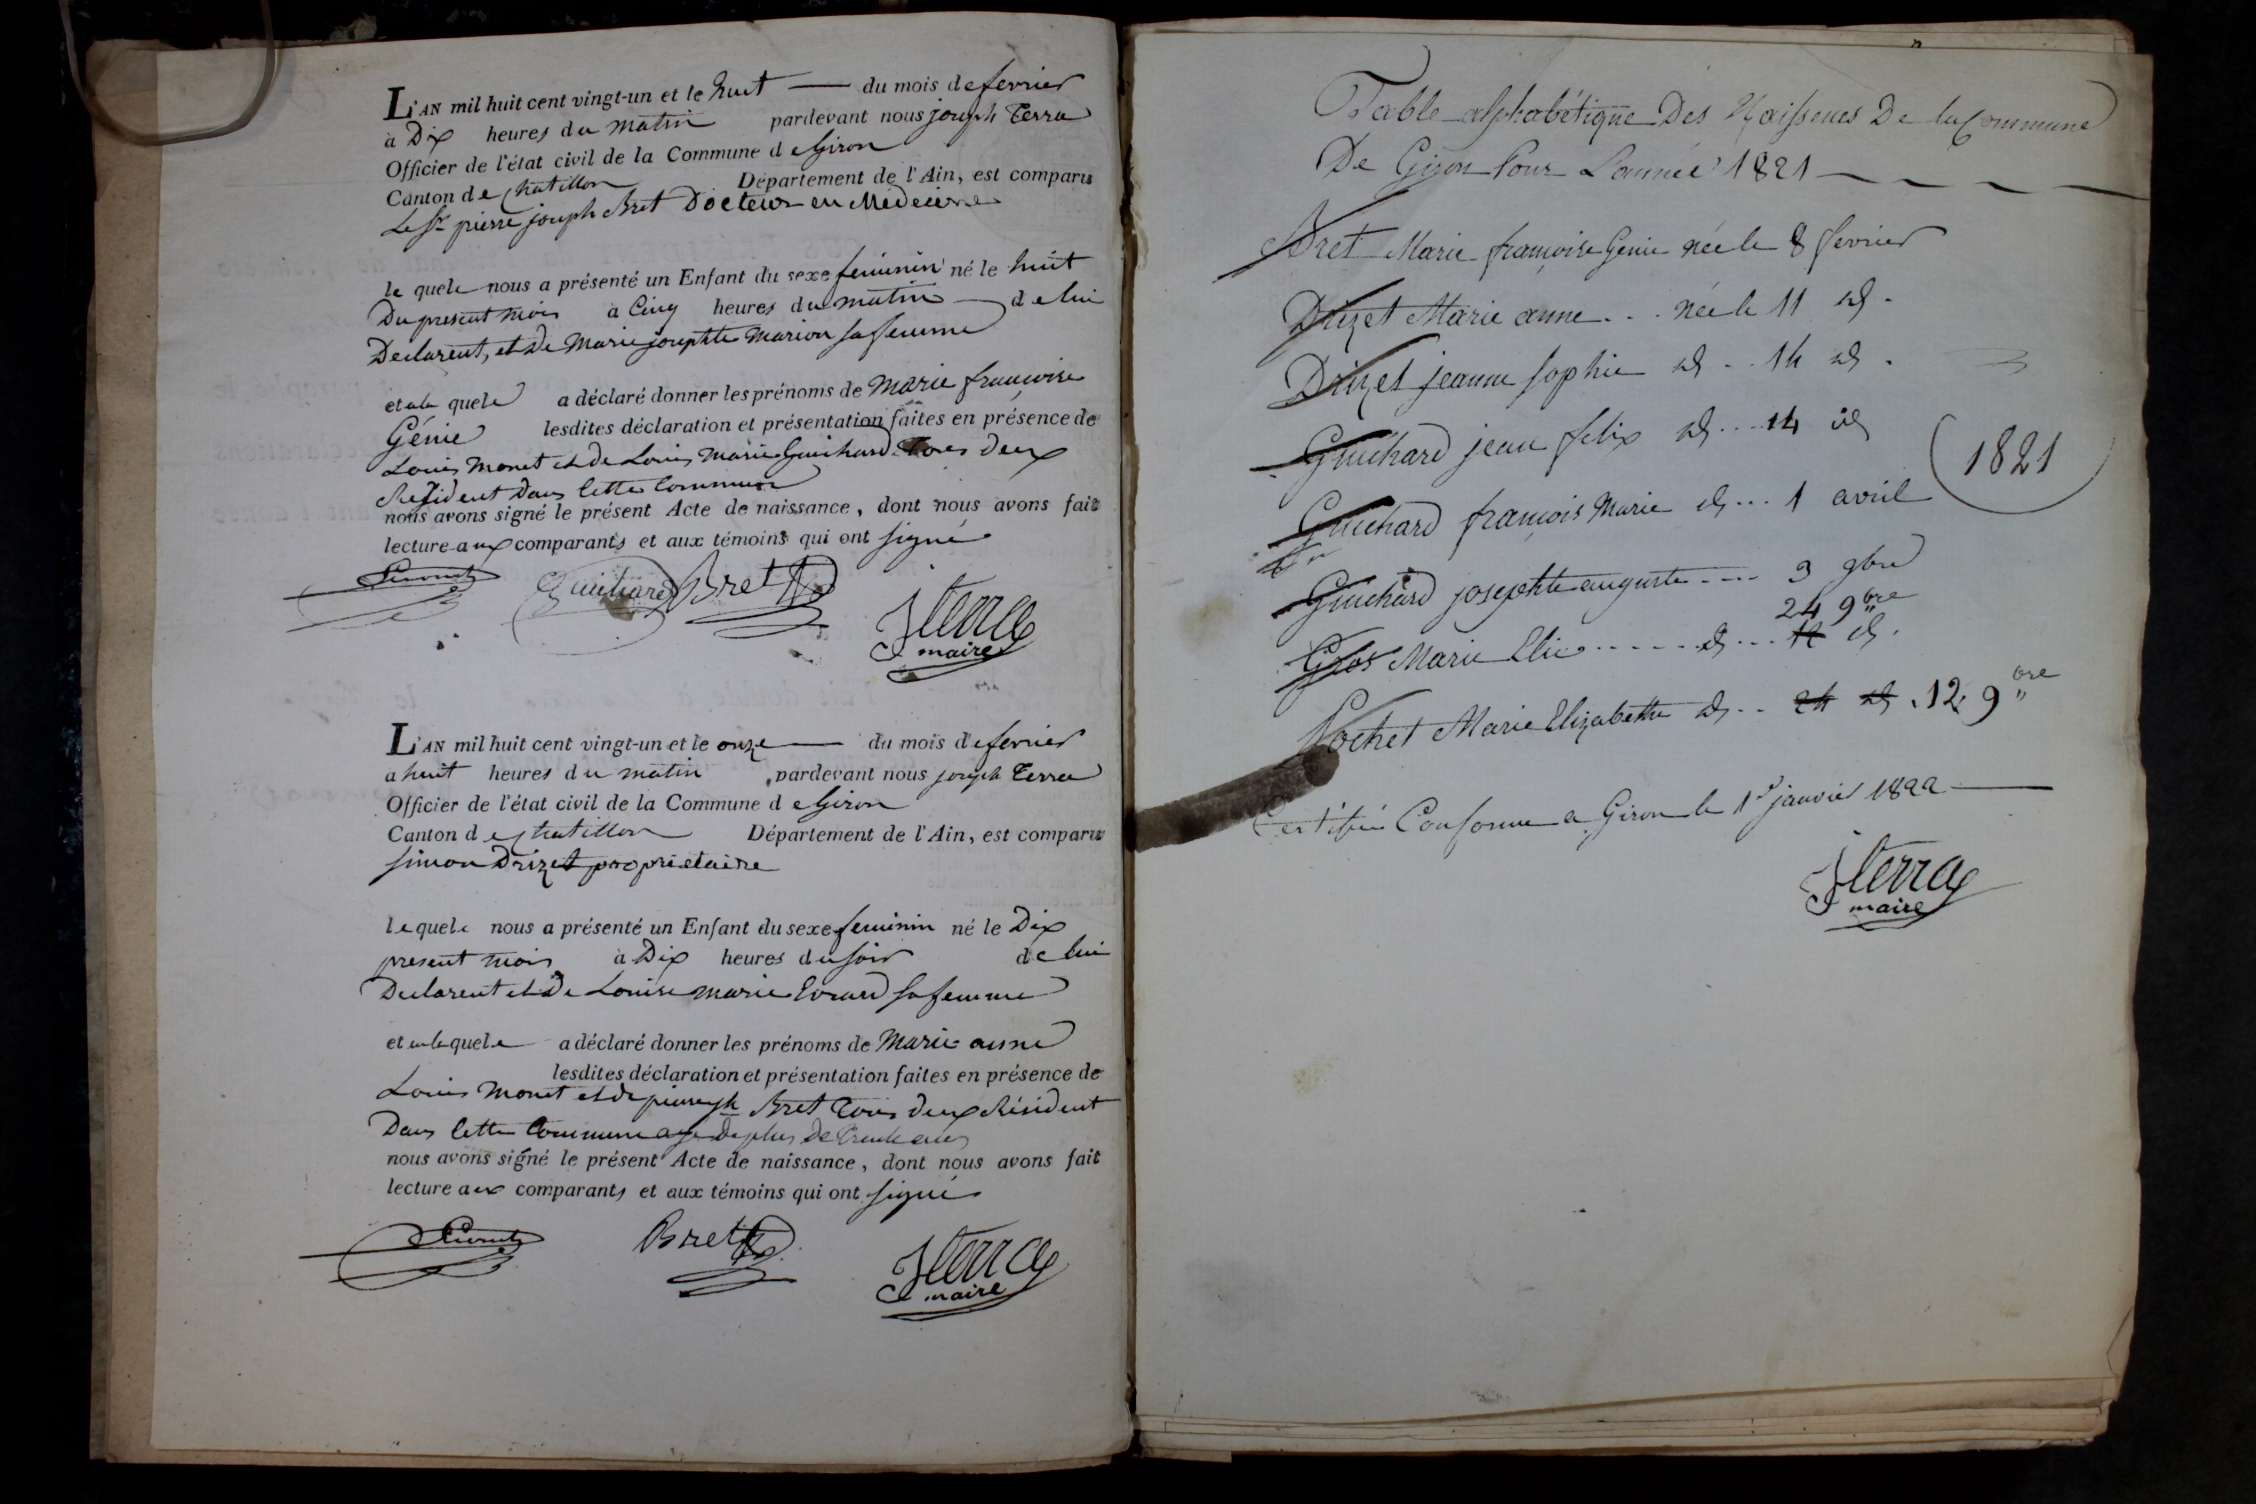 L'AN mil huit cent vingt-un et le huit du mois de fevrier
à Dix heures du matin pardevant nous joseph Terra
Officier de l'état civil de la Commune de Giron
Canton de Chatillon Département de l'Ain, est comparu
Le Sr pierre joseph Bret Docteur en Medecine
le quele nous a présenté un Enfant du sexe feminin né le huit
Du present mois à Cinq heures du matin de lui
Declarent, et de Marie josephte Marion sa femme
et au quele a déclaré donner les prénoms de Marie françoise
Génie lesdites déclaration et présentation faites en présence de
Louis Monet et de Louis Marie Guichard Tous deux
Résident Dans Cette Commune
nous avons signé le présent Acte de naissance, dont nous avons fait
lecture aux comparants et aux témoins qui ont signé
Guichard Bret
J Terra
maire
L'AN mil huit cent vingt-un et le onze du mois de fevrier
a huit heures du matin pardevant nous joseph Terra
Officier de l'état civil de la Commune de Giron
Canton de Chatillon Département de l'Ain, est comparu
simon Drizet proprietaire
le quele nous a présenté un Enfant du sexe feminin né le Dix
present mois à Dix heures du soir de lui
Declarent et de Louise marie Evrard sa femme
et au quele a déclaré donner les prénoms de Marie anne
lesdites déclaration et présentation faites en présence de
Louis Monet et de pierre jh Bret Tous deux Résident
Dans Cette Commune agé de plus de Trente ans
nous avons signé le présent Acte de naissance, dont nous avons fait
lecture aux comparants et aux témoins qui ont signé
Bret
J Terra
maire
Table alphabétique Des Naissences De la Commune
De Giron Pour L'année 1821
Bret Marie françoise Genie née le 8 fevrier
Drizet Marie anne . . . née le 11 id .
Drizet jeanne sophie id . . 14 id .
Guichard jean felix id . . . 14 id
1821
Guichard françois Marie id . . . 1 avril
Guichard josephte auguste . . . . 3 9bre
24 9bre
Gros Marie Elie . . . . . . id . . . 12 id .
Pochet Marie Elizabethe id . . 24 id . 12 9bre
Certifié Conforme a Giron le 1er janvier 1822
J Terra
maire